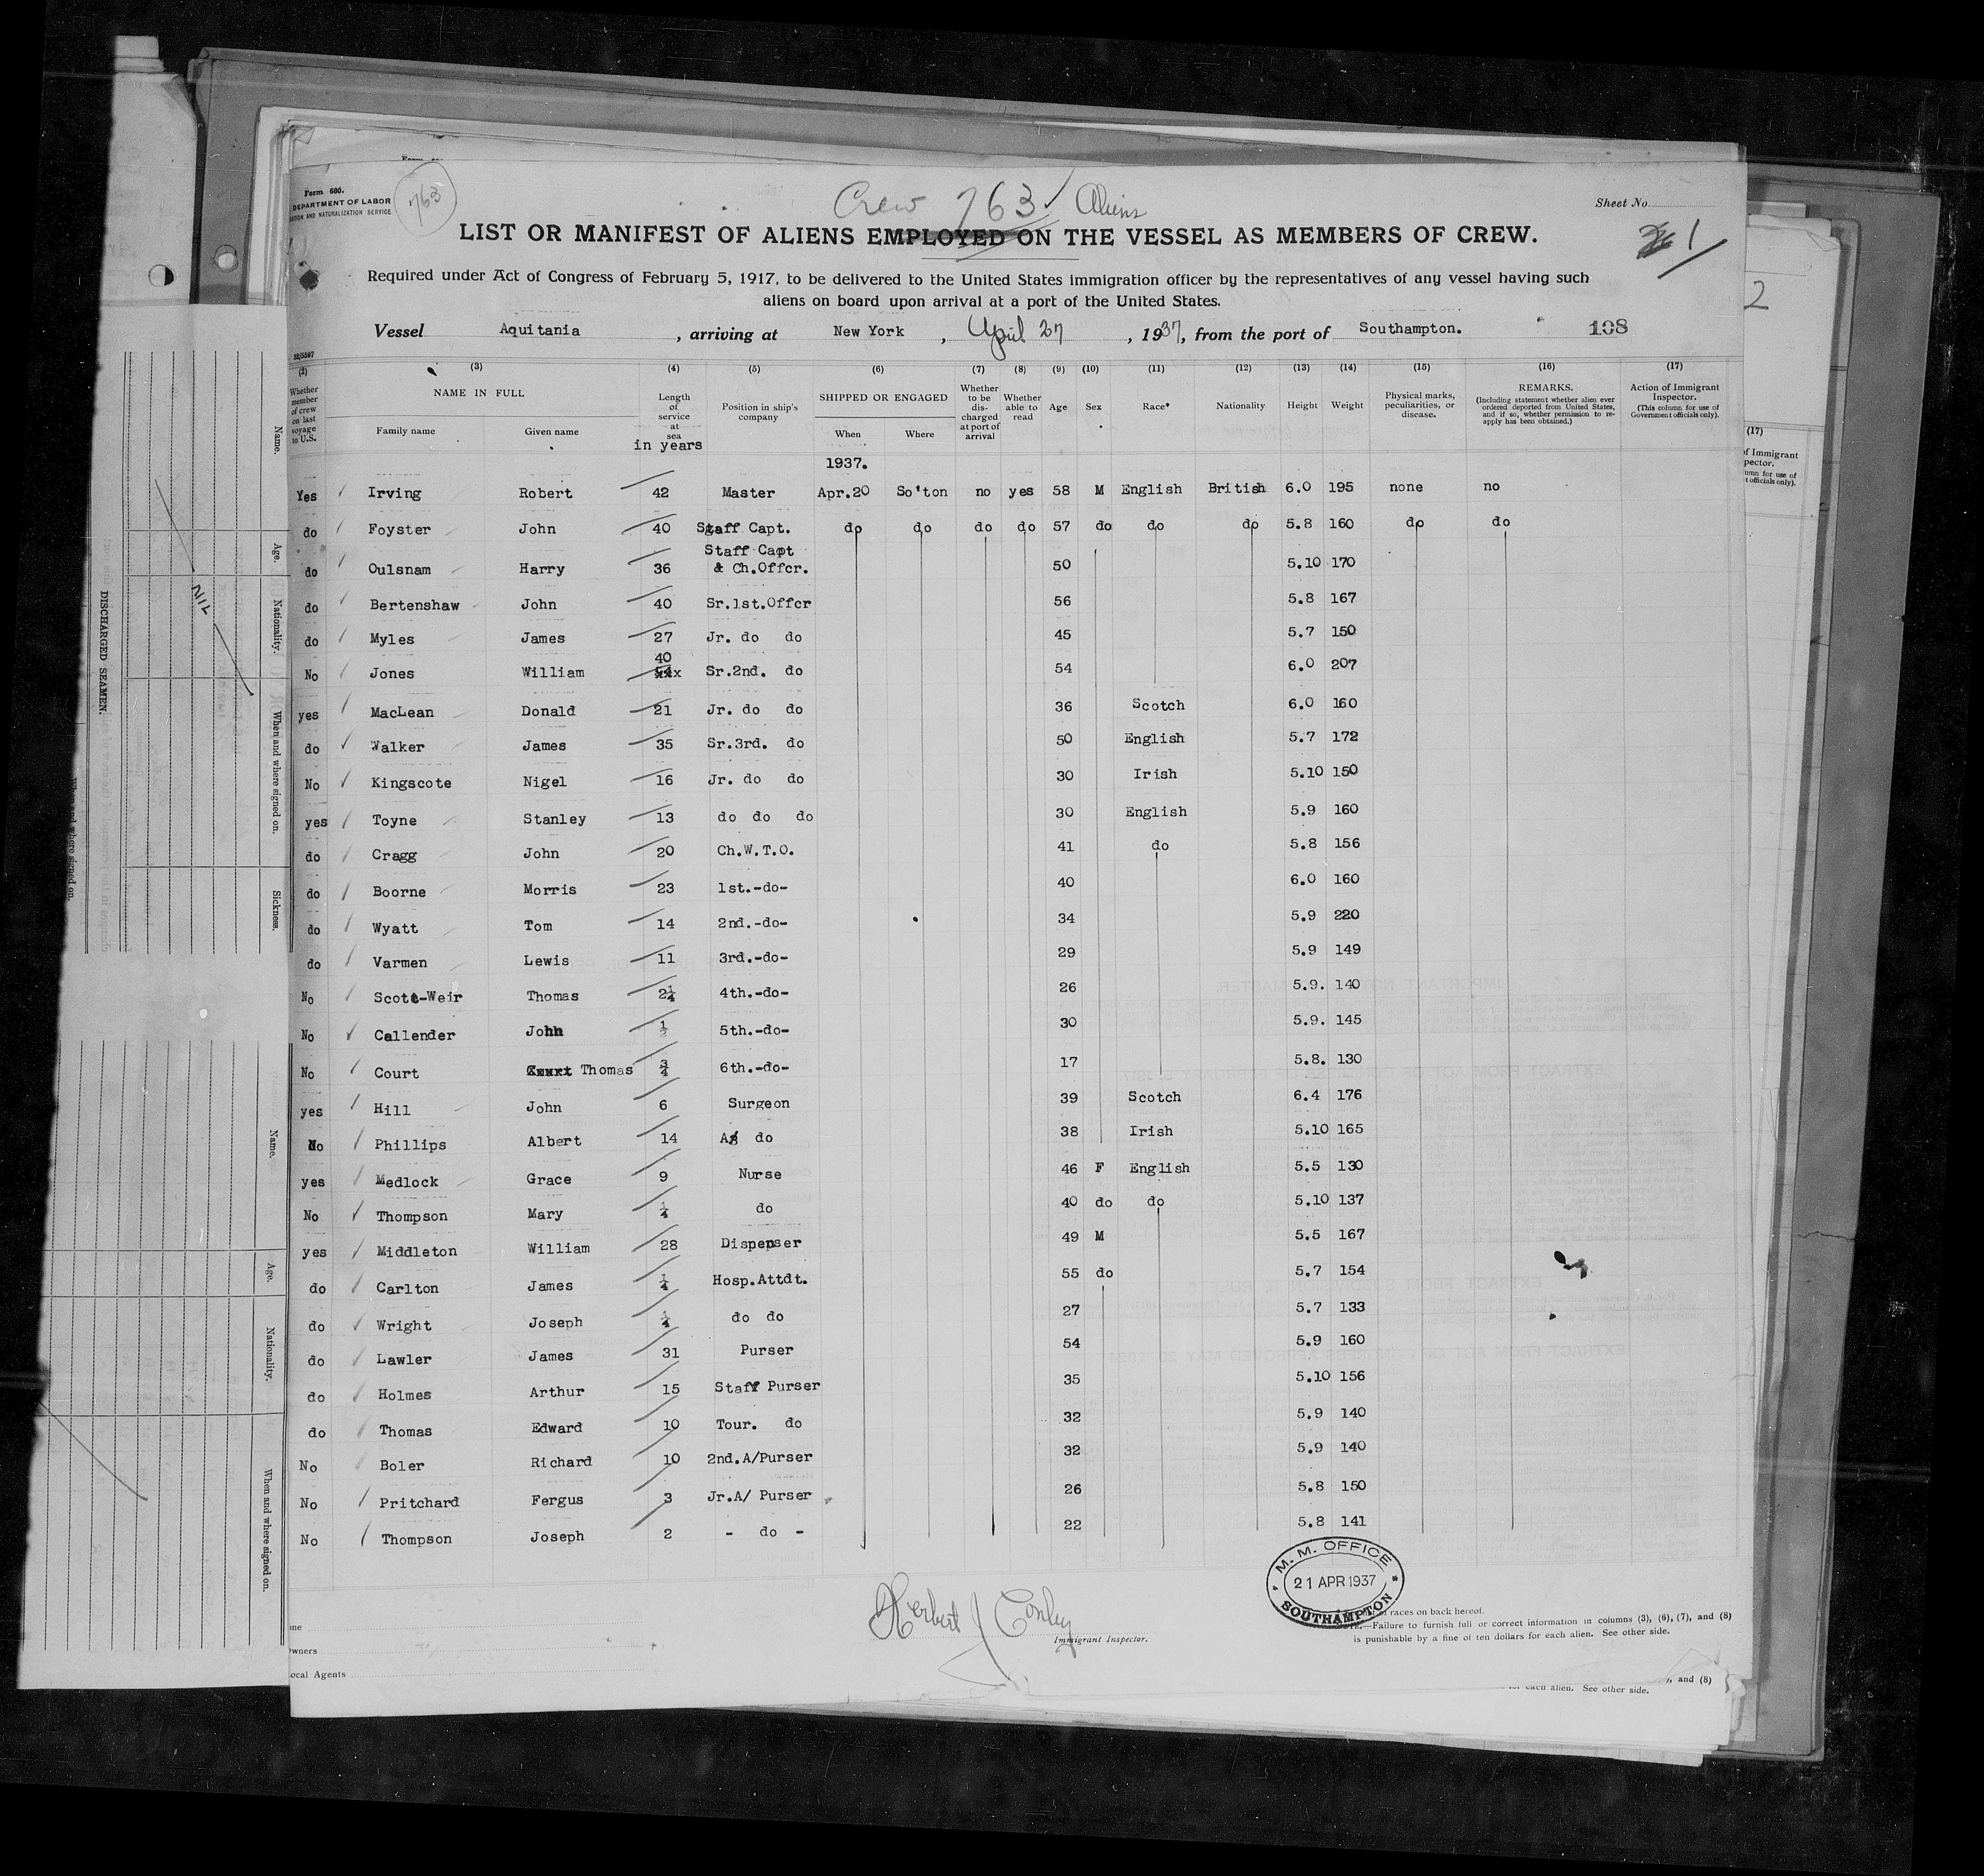 Form 680.
DEPARTMENT OF LABOR
NATURALIZATION SERVICE
763
Crew 763 Aliens
Sheet No.
1
LIST OR MANIFEST OF ALIENS EMPLOYED ON THE VESSEL AS MEMBERS OF CREW.
Required under Act of Congress of February 5, 1917, to be delivered to the United States immigration officer by the representatives of any vessel having such
aliens on board upon arrival at a port of the United States.
Vessel Aquitania , arriving at New York , April 27 , 1937, from the port of Southampton. 108
(2) (3) (4) (5) (6) (7) (8) (9) (10) (11) (12) (13) (14) (15) (16) (17)
Whether member of crew on last voyage to U.S. NAME IN FULL Family name Given name Length of service at sea in years Position in ship's company SHIPPED OR ENGAGED When Where Whether to be discharged at port of arrival Whether able to read Age Sex Race* Nationality Height Weight Physical marks, peculiarities, or disease. REMARKS. (Including statement whether alien ever ordered deported from United States, and if so, whether permission to re-apply has been obtained.) Action of Immigrant Inspector. (This column for use of Government officials only).
1937.
Yes Irving Robert 42 Master Apr.20 So'ton no yes 58 M English British 6.0 195 none no
do Foyster John 40 Staff Capt. do do do do 57 do do do 5.8 160 do do
do Oulsnam Harry 36 Staff Capt & Ch.Offcr. 50 5.10 170
do Bertenshaw John 40 Sr.1st.Offcr 56 5.8 167
do Myles James 27 Jr. do do 45 5.7 150
No Jones William 40 Sr.2nd. do 54 6.0 207
yes MacLean Donald 21 Jr. do do 36 Scotch 6.0 160
do Walker James 35 Sr.3rd. do 50 English 5.7 172
No Kingscote Nigel 16 Jr. do do 30 Irish 5.10 150
yes Toyne Stanley 13 do do do 30 English 5.9 160
do Cragg John 20 Ch.W.T.O. 41 do 5.8 156
do Boorne Morris 23 1st.-do- 40 6.0 160
do Wyatt Tom 14 2nd.-do- 34 5.9 220
do Varmen Lewis 11 3rd.-do- 29 5.9 149
No Scott-Weir Thomas 2¼ 4th.-do- 26 5.9. 140
No Callender John 5th.-do- 30 5.9. 145
No Court Thomas ¾ 6th.-do- 17 5.8. 130
yes Hill John 6 Surgeon 39 Scotch 6.4 176
No Phillips Albert 14 A/ do 38 Irish 5.10 165
yes Medlock Grace 9 Nurse 46 F English 5.5 130
No Thompson Mary ¼ do 40 do do 5.10 137
yes Middleton William 28 Dispenser 49 M 5.5 167
do Carlton James ¼ Hosp.Attdt. 55 do 5.7 154
do Wright Joseph ¼ do do 27 5.7 133
do Lawler James 31 Purser 54 5.9 160
do Holmes Arthur 15 Staff Purser 35 5.10 156
do Thomas Edward 10 Tour. do 32 5.9 140
No Boler Richard 10 2nd.A/Purser 32 5.9 140
No Pritchard Fergus 3 Jr.A/ Purser 26 5.8 150
No Thompson Joseph 2 - do - 22 5.8 141
Herbert J Conley
Immigrant Inspector.
M. M. OFFICE
21 APR 1937
SOUTHAMPTON
races on back hereof.
—Failure to furnish full or correct information in columns (3), (6), (7), and (8)
is punishable by a fine of ten dollars for each alien. See other side.
wners
ocal Agents
, and (8)
each alien. See other side.
2
(17)
Name. Age. Nationality. When and where signed on. Sickness.
NIL
DISCHARGED SEAMEN.
Name. Age. Nationality. When and where signed on.